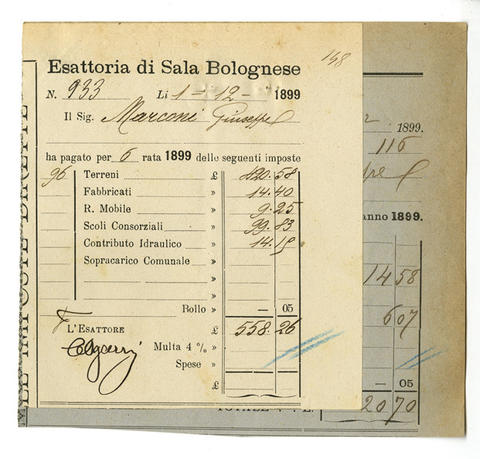 198
Esattoria di Sala Bolognese
N. 933 Li 1 - 12 - 1899
Il Sig. Marconi Giuseppe
ha pagato per 6 rata 1899 delle seguenti imposte
96 Terreni £ 420.58
Fabbricati » 14.40
R. Mobile » 9.25
Scoli Consorziali » 99.83
Contributo Idraulico » 14.15
Sopracarico Comunale »
»
»
Rollo » — 05
L'ESATTORE £ 558.26
Multa 4 % »
Spese »
£
IMPOSTE DIRETTE
1899.
116
anno 1899.
14 58
6 07
— 05
TOTALE
20 70